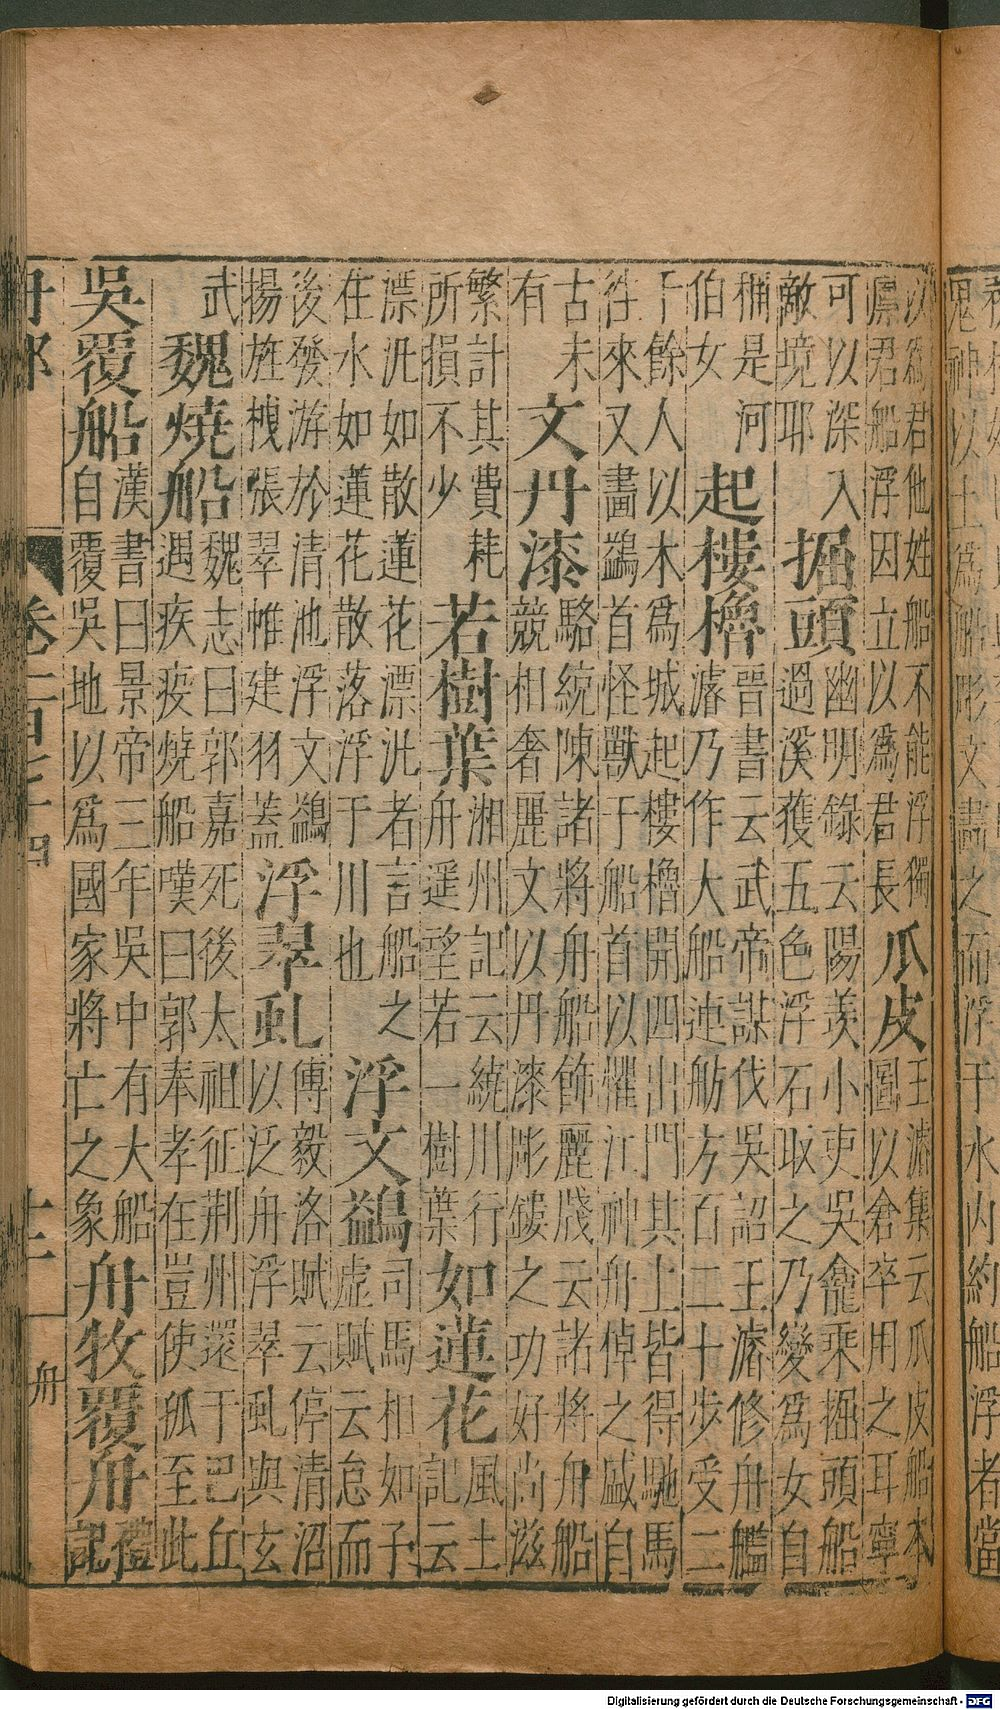 鬼神以土為船彫文畫之而浮于水內約船浮者當
汝為君他姓船不能浮獨
廩君船浮因立以為君長
瓜皮
王濬集云瓜皮船本
圖以倉卒用之耳寧
可以深入
敵境耶
掘頭
幽明錄云陽羨小吏吳龕乘掘頭船
過溪獲五色浮石取之乃變為女自
稱是河
伯女
起樓櫓
晉書云武帝謀伐吳詔王濬修舟艦
濬乃作大船連舫方百二十步受二
千餘人以木為城起樓櫓開四出門其上皆得馳馬
徃來又畫鷁首怪獸于船首以懼江神舟倬之盛自
古未
有
文丹漆
駱統陳諸將舟船飾麗牋云諸將舟船
競相奢麗文以丹漆彫鏤之功好尚滋
繁計其費耗
所損不少
若樹葉
湘州記云繞川行
舟遥望若一樹葉
如蓮花
風土
記云
漂沘如散蓮花漂沘者言船之
在水如蓮花散落浮于川也
浮文鷁
司馬相如子
虛賦云怠而
後發游於清池浮文鷁
揚旌栧張翠帷建羽蓋
浮翠虬
傅毅洛賦云停清沼
以泛舟浮翠虬與玄
武
魏燒船
魏志曰郭嘉死後太祖征荆州還于巴丘
遇疾疫燒船嘆曰郭奉孝在豈使孤至此
吳覆船
漢書曰景帝三年吳中有大船
自覆吳地以為國家將亡之象
舟牧覆舟
禮
記
舟
Digitalisierung gefördert durch die Deutsche Forschungsgemeinschaft - DFG